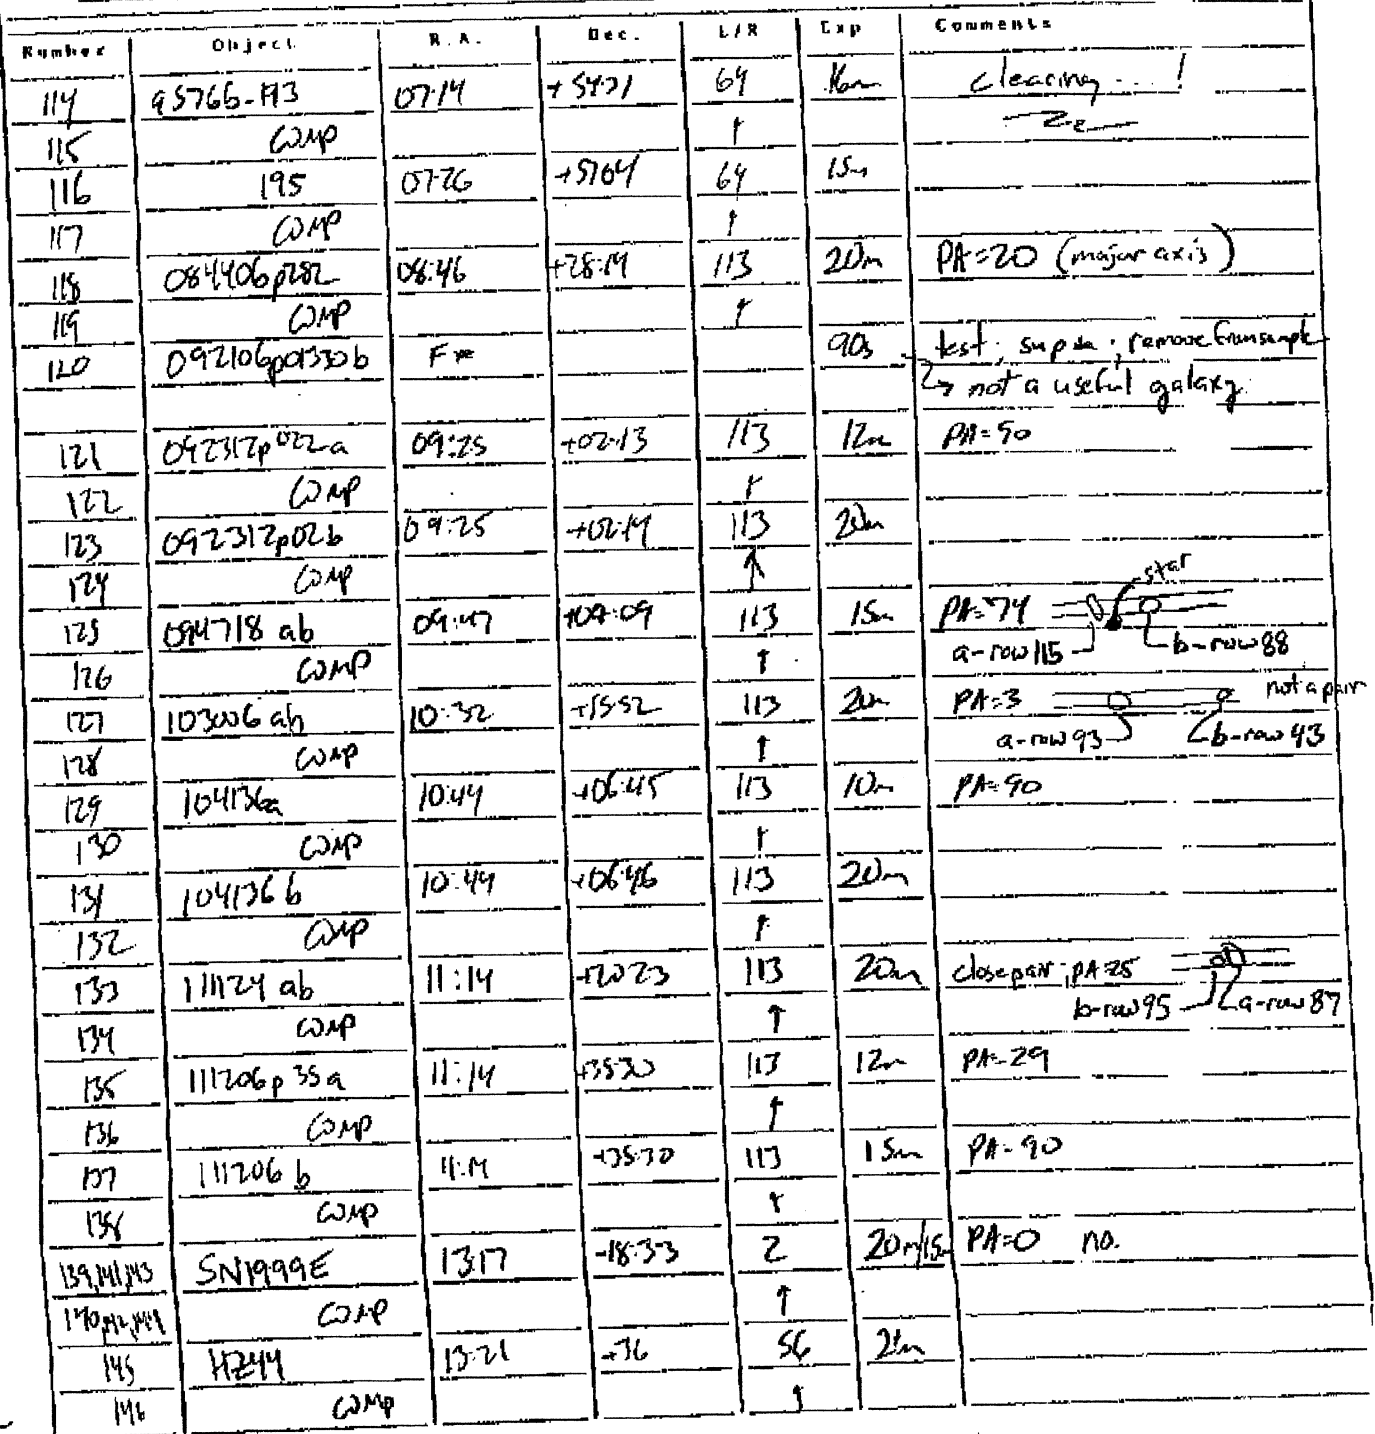 Number Object R.A. Dec. L/R Exp Comments
114 07:14 64 clearing ... !
115 COMP ↑
116 195 07:26 +5704 64 15m
117 COMP ↑
118 084406p282 08:46 +28:14 113 20m PA=20 (major axis)
119 COMP ↑
120 092106p01330b 90s test; remove from sample
→ not a useful galaxy.
121 092312p022a 09:25 +02:13 113 12m PA=90
122 COMP ↑
123 092312p02b 09:25 +02:14 113 20m
124 COMP ↑
star
125 094718 ab 09:47 113 15m PA=74
a-row 115 b-row 88
126 COMP ↑
127 103006 ab 10:32 +15:52 113 20m PA=3 not a pair
a-row 93 b-row 43
128 COMP ↑
129 104136a 10:44 +06:45 113 10m PA=90
130 COMP ↑
131 104136 b 10:44 +06:46 113 20m
132 COMP ↑
133 111124 ab 11:14 +20:23 113 20m close pair; PA=25
b-row 95 a-row 87
134 COMP ↑
135 111206p35a 11:14 +35:30 113 12m PA=29
136 COMP ↑
137 111206 b 11:14 +35:30 113 15m PA=90
138 COMP ↑
139,141,143 SN1999E 13:17 -18:33 2 20m/15m PA=0 no.
140,142,144 COMP ↑
145 HZ44 13:21 +36 56 2m
146 COMP ↑